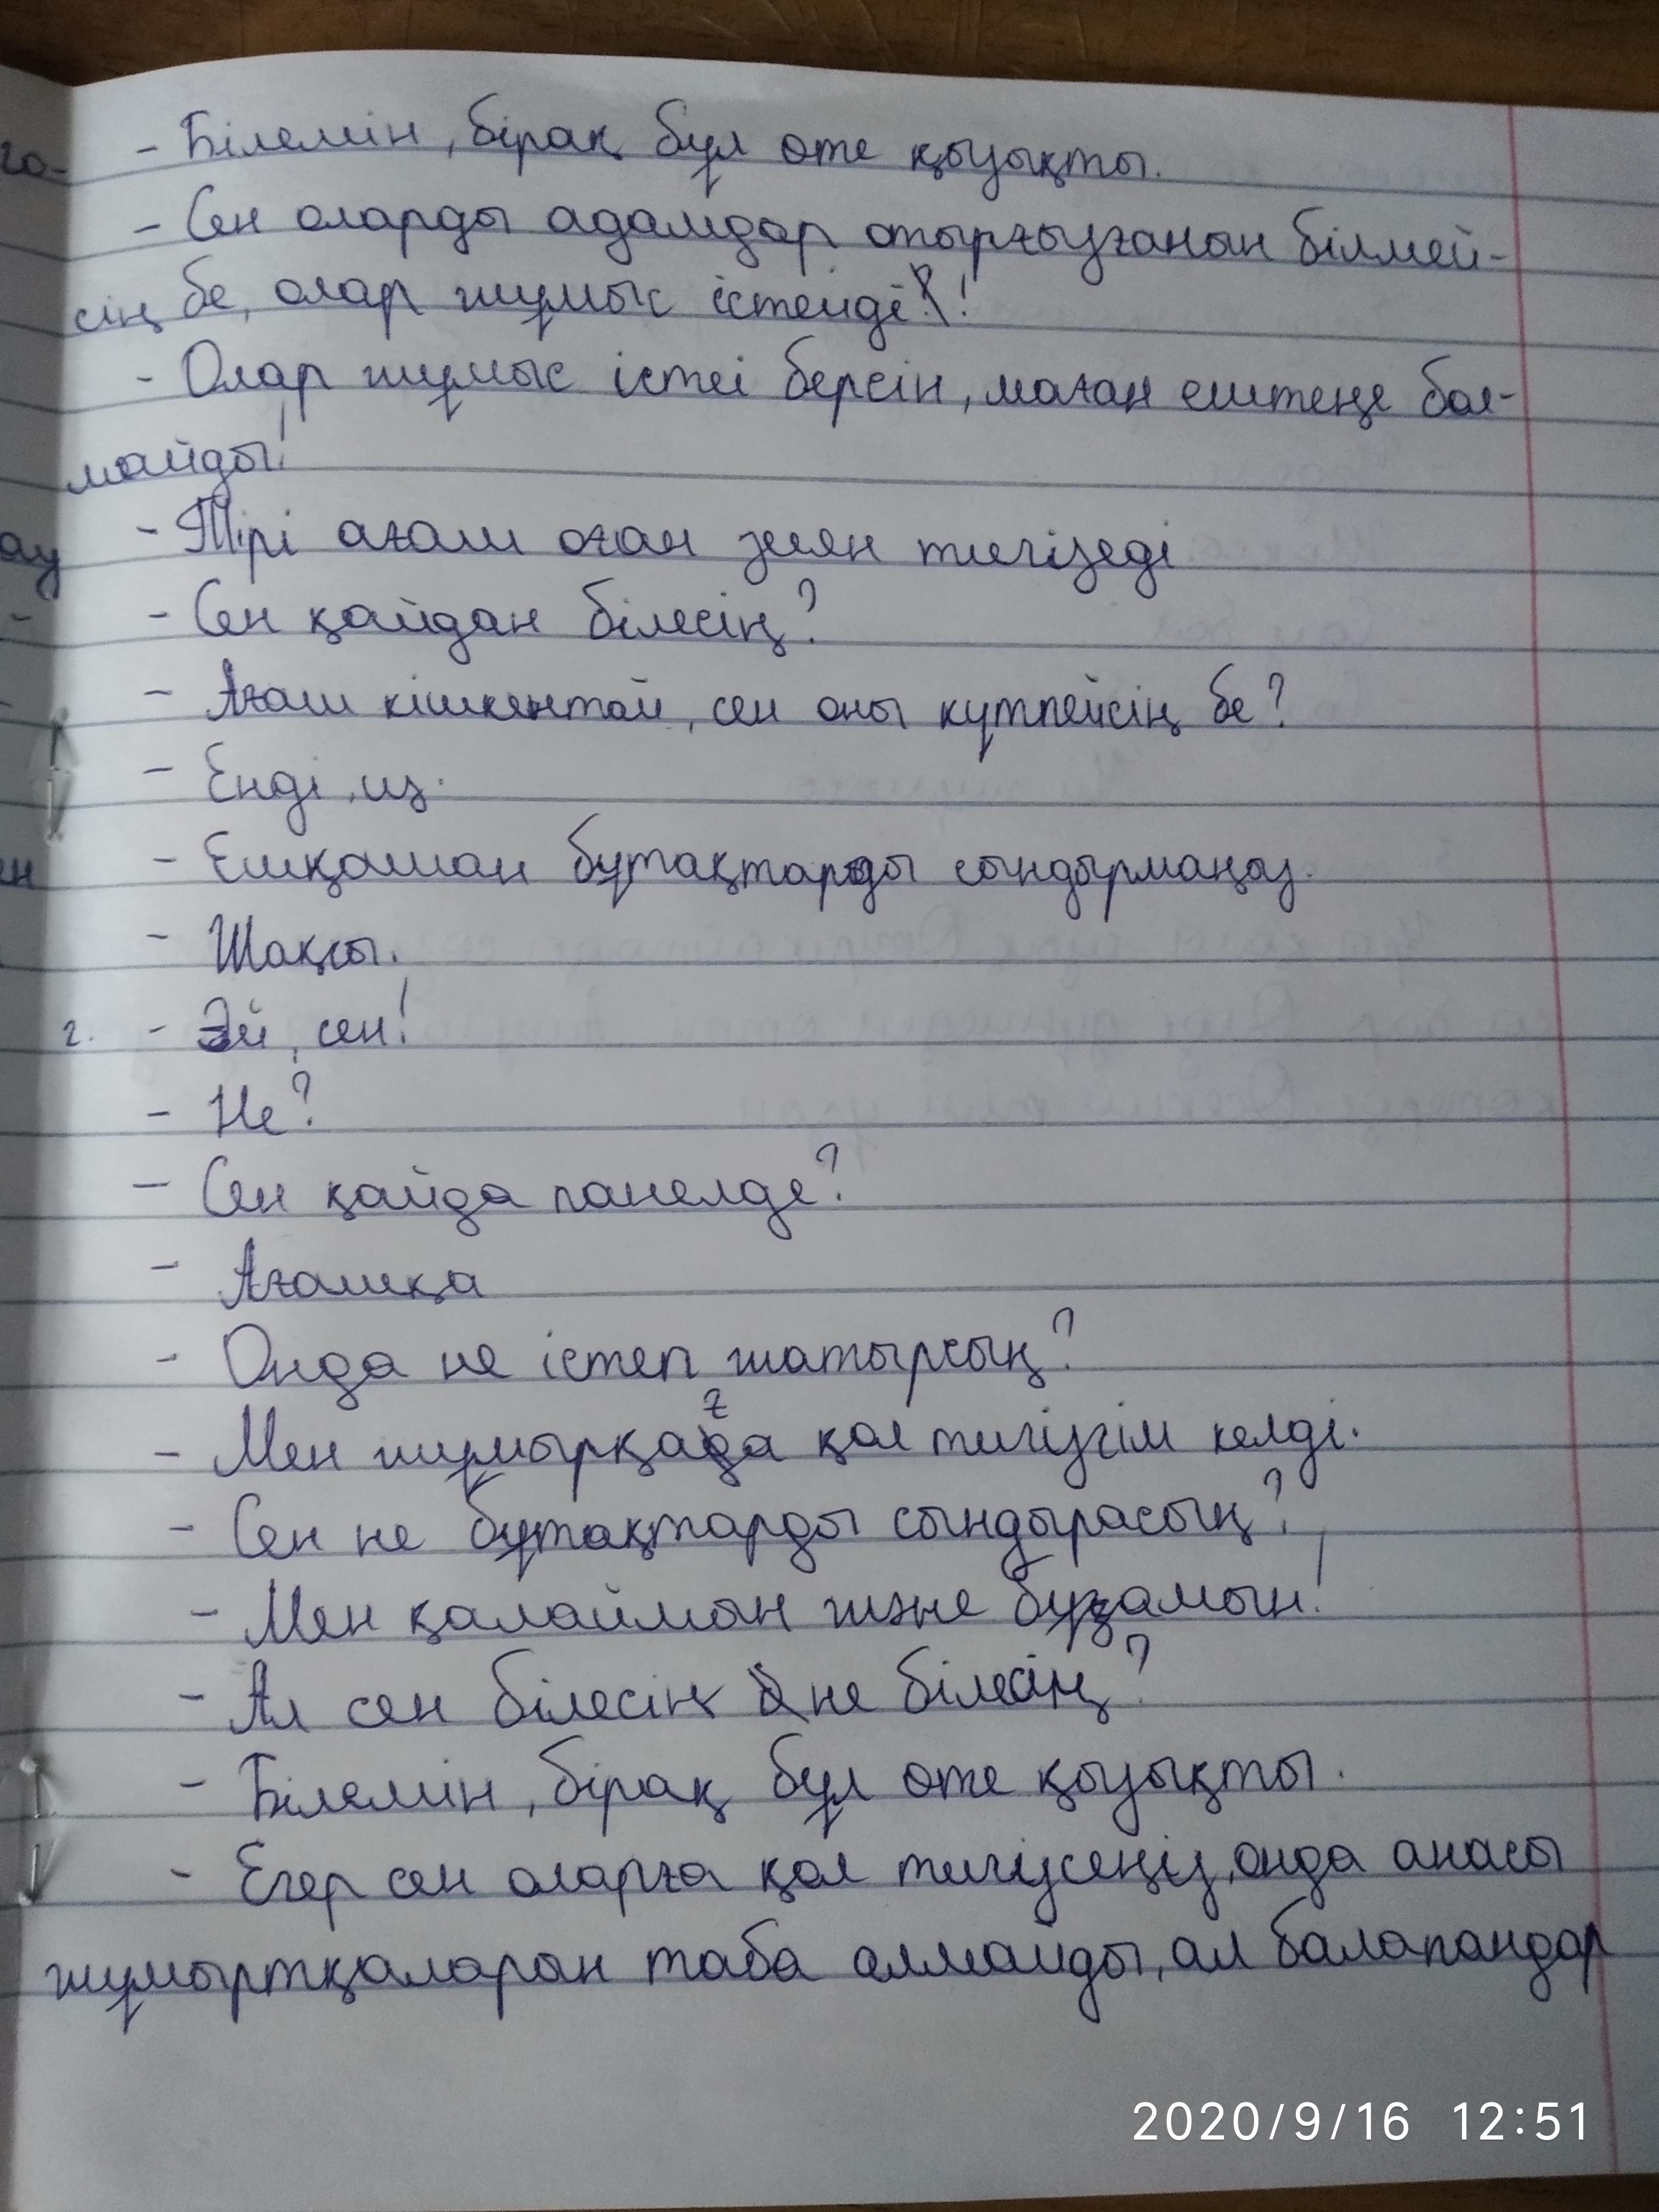 - Білемін, бірақ бұл өте қызықты.
го-
- Сен оларды адамдар отырғызғанын білмей-
сің бе, олар жұмыс істейді!
- Олар жұмыс істей берсін, маған ештеңе бол-
майды!
- Тірі ағаш оған зиян тигізеді
ау
- Сен қайдан білесің?
- Ағаш кішкентай, сен оны күтпейсің бе?
- Енді, из.
- Ешқашан бұтақтарды сындырмаңыз.
ен
- Жақсы.
2. - Эй, сен!
- Не?
- Сен қайда панелде?
- Ағашқа
- Онда не істеп жатырсың?
- Мен жұмырқаға қол тигізгім келді.
- Сен не бұтақтарды сындырасың?
- Мен қалаймын және бұзамын!
- Ал сен білесің не білесің?
- Білемін, бірақ бұл өте қызықты.
- Егер сен оларға қол тигізсеңіз, онда анасы
жұмыртқаларын таба алмайды, ал балапандар
2020/9/16 12:51